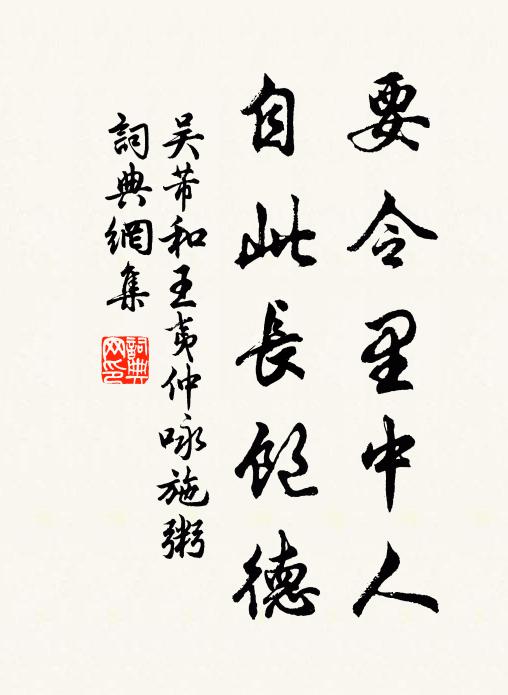 要令里中人
自此長飽德
吴芾和王夷仲咏施粥
詞典網集
詞典網印